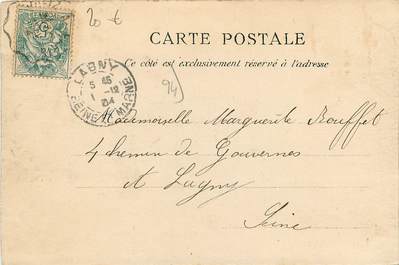 20 €
CARTE POSTALE
Ce côté est exclusivement réservé à l'adresse
LAGNY
5 45
1 -12
04
SEINE-ET-MARNE
94
Mademoiselle Marguerite Rouffet
4 chemin de Gouvernes
A Lagny
Seine